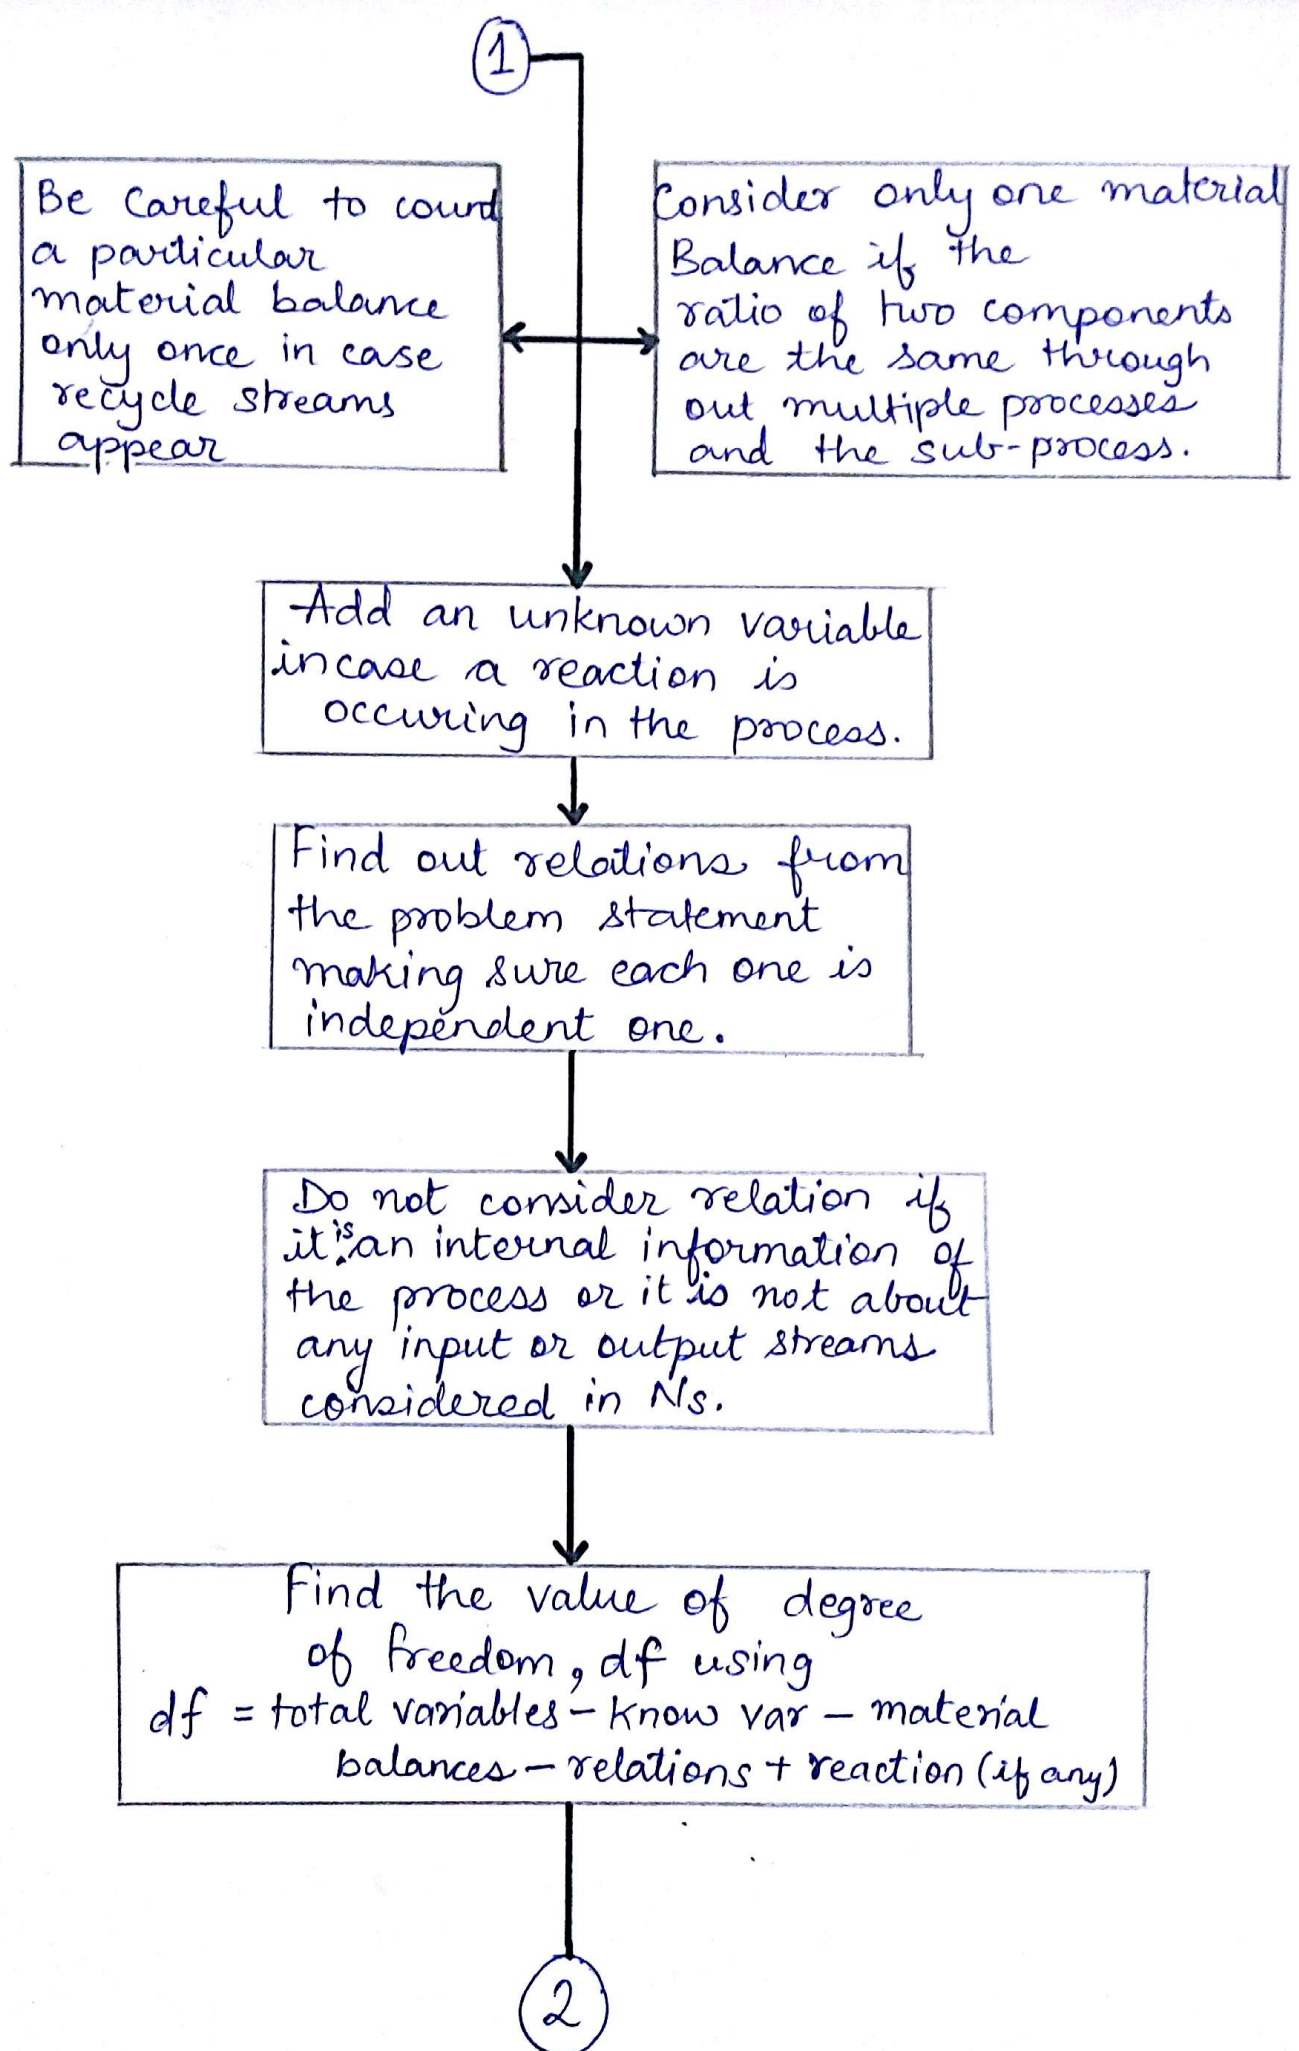 1
Be Careful to count
a particular
material balance
only once in case
recycle streams
appear
Consider only one material
Balance if the
ratio of two components
are the same through
out multiple processes
and the sub-process.
Add an unknown variable
incase a reaction is
occuring in the process.
Find out relations from
the problem statement
making sure each one is
independent one.
Do not consider relation if
it is an internal information of
the process or it is not about
any input or output streams
considered in Ns.
Find the value of degree
of freedom, df using
df = total variables - know var - material
balances - relations + reaction (if any)
2